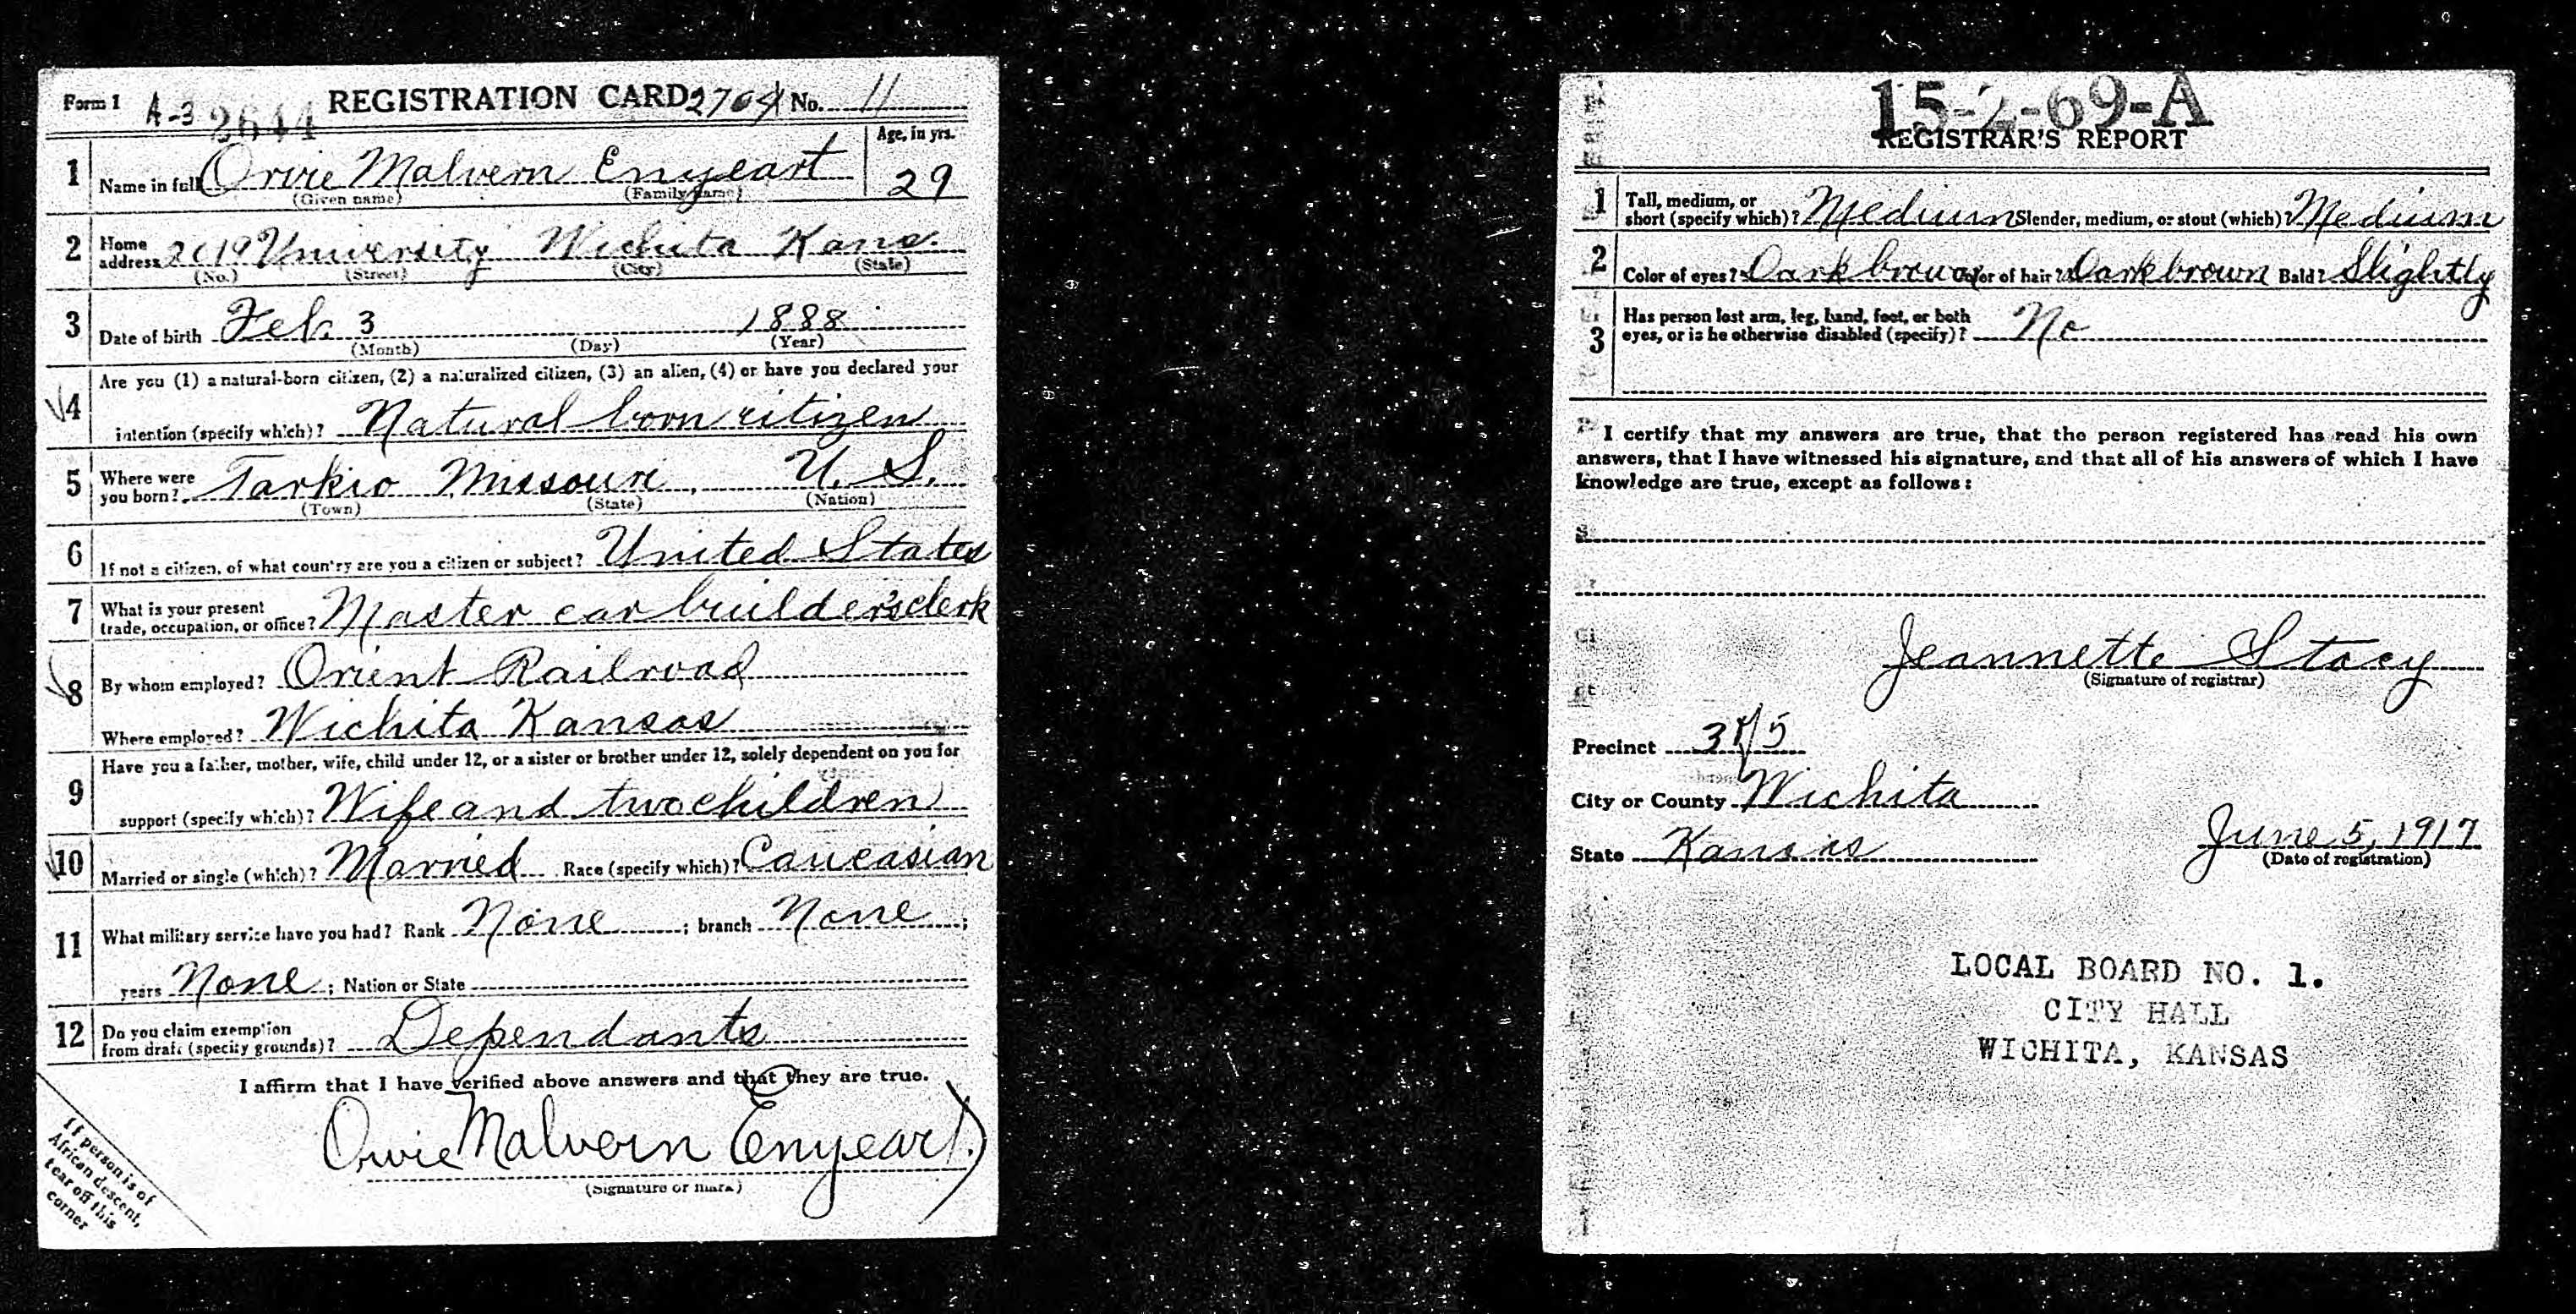 Form 1 A-3 2644 REGISTRATION CARD No. 11
Age, in yrs.
1 Name in full Orvie Malvern Enyeart 29
(Given name) (Family name)
2 Home address 2019 University Wichita Kans.
(No.) (Street) (City) (State)
3 Date of birth Feb. 3 1888
(Month) (Day) (Year)
4 Are you (1) a natural-born citizen, (2) a naturalized citizen, (3) an alien, (4) or have you declared your
intention (specify which)? Natural born citizen
5 Where were you born? Tarkio Missouri, U. S.
(Town) (State) (Nation)
6 If not a citizen, of what country are you a citizen or subject? United States
7 What is your present trade, occupation, or office? Master car builder's clerk
8 By whom employed? Orient Railroad
Where employed? Wichita Kansas
9 Have you a father, mother, wife, child under 12, or a sister or brother under 12, solely dependent on you for
support (specify which)? Wife and two children
10 Married or single (which)? Married Race (specify which)? Caucasian
11 What military service have you had? Rank None; branch None;
years None; Nation or State
12 Do you claim exemption from draft (specify grounds)? Dependants
I affirm that I have verified above answers and that they are true.
Orvie Malvern Enyeart.
(Signature or mark)
If person is of
African descent,
tear off this
corner
15-2-69-A
REGISTRAR'S REPORT
1 Tall, medium, or short (specify which)? Medium Slender, medium, or stout (which)? Medium
2 Color of eyes? Dark brown Color of hair? Dark brown Bald? Slightly
3 Has person lost arm, leg, hand, foot, or both
eyes, or is he otherwise disabled (specify)? No
I certify that my answers are true, that the person registered has read his own
answers, that I have witnessed his signature, and that all of his answers of which I have
knowledge are true, except as follows:
Jeannette Stacy
(Signature of registrar)
Precinct
City or County Wichita
State Kansas June 5, 1917
(Date of registration)
LOCAL BOARD NO. 1.
CITY HALL
WICHITA, KANSAS